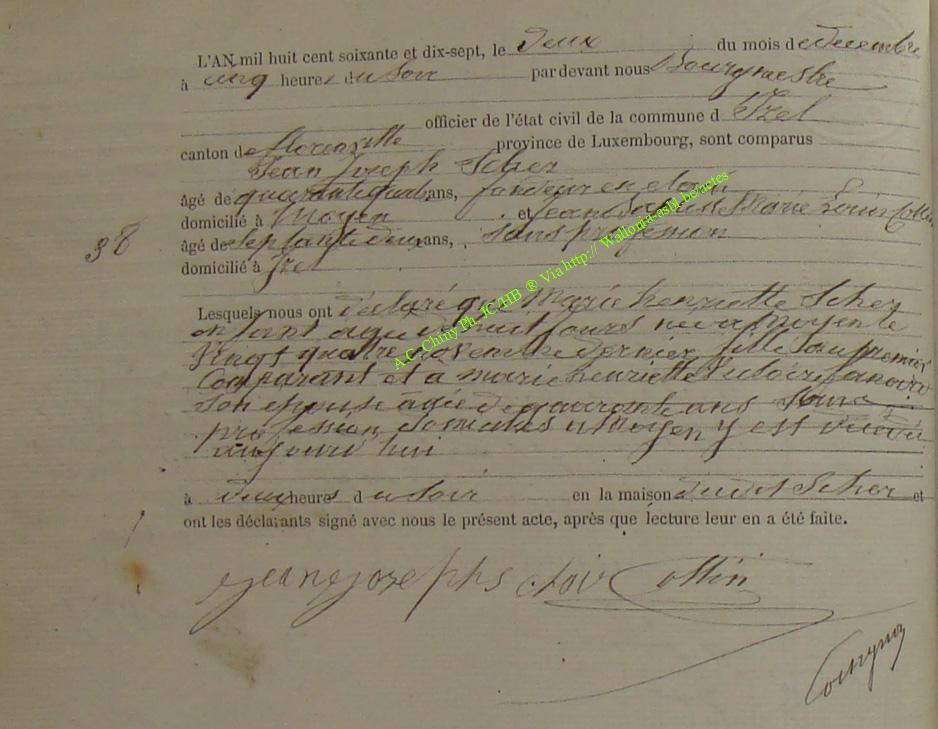 L'AN mil huit cent soixante et dix-sept, le deux du mois de decembre
à cinq heures du soir pardevant nous Bourgmestre
officier de l'état civil de la commune d Izel
canton de florenville province de Luxembourg, sont comparus
Jean Joseph Scher
âgé de quarante quatre ans, fondeur en etain
domicilié à Moyen et Jean Baptiste Marie Louis Collin
âgé de septante deux ans, sans profession
domicilié à Izel
38
Lesquels nous ont déclaré que Marie henriette Scher
enfant agée de huit jours née a Moyen le
vingt quatre novembre dernier fille du premier
Comparant et a marie henriette
son epouse agée de quarante ans sans
profession domiciliés a Moyen y est décédée
aujourd'hui
à deux heures du soir en la maison dudit Scher et
ont les déclarants signé avec nous le présent acte, après que lecture leur en a été faite.
jean joseph Collin
A.C. Chiny Ph. JC/HB ® Via http:// Wallonia-asbl.be/actes